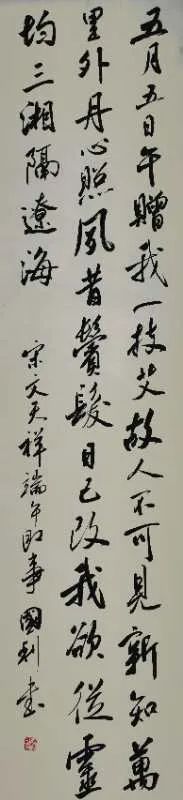 五月五日午贈我一枝艾故人不可見新知萬
里外丹心照夙昔鬢髮日已改我欲從靈
均三湘隔遼海
宋文天祥端午即事國利書